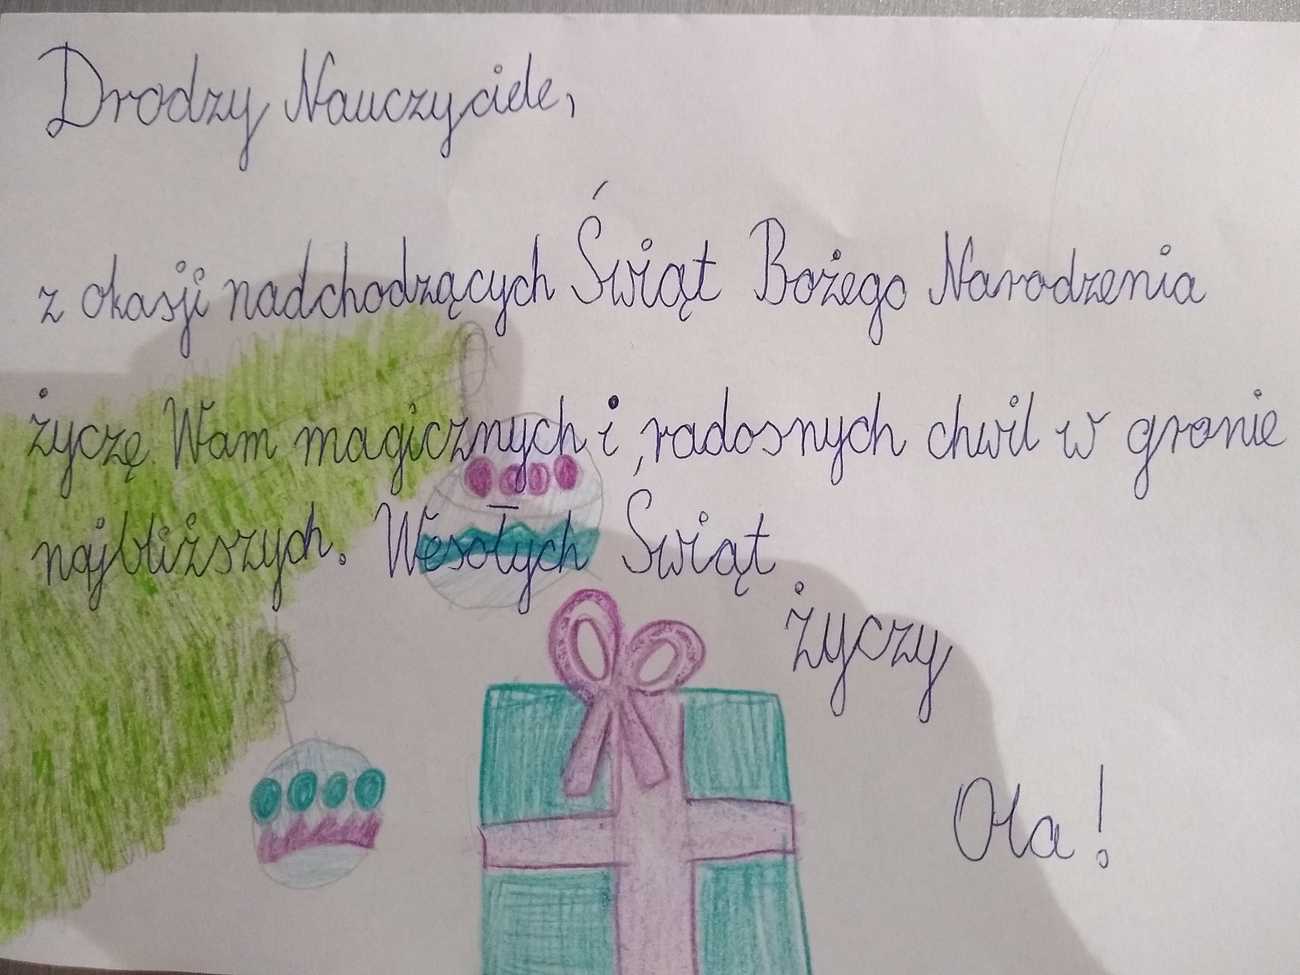 Drodzy Nauczyciele,
z okazji nadchodzących Świąt Bożego Narodzenia
życzę Wam magicznych i radosnych chwil w gronie
najbliższych. Wesołych Świąt
życzy
Ola!